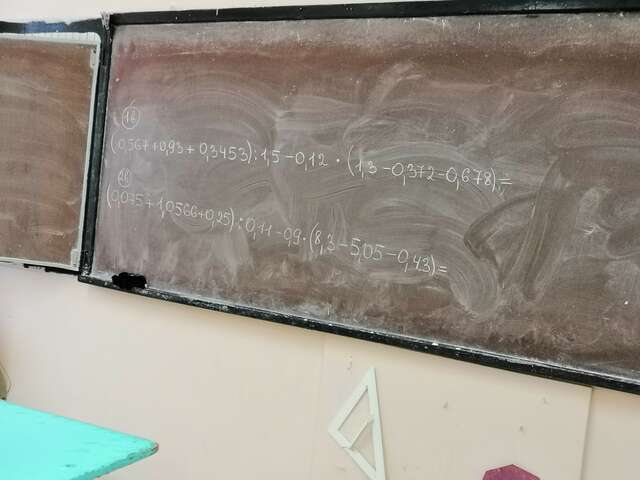 1б
(0,567+0,93+0,3453):1,5-0,12·(1,3-0,372-0,678)=
2б
(0,075+1,0566+0,25):0,11-0,9·(8,3-5,05-0,43)=